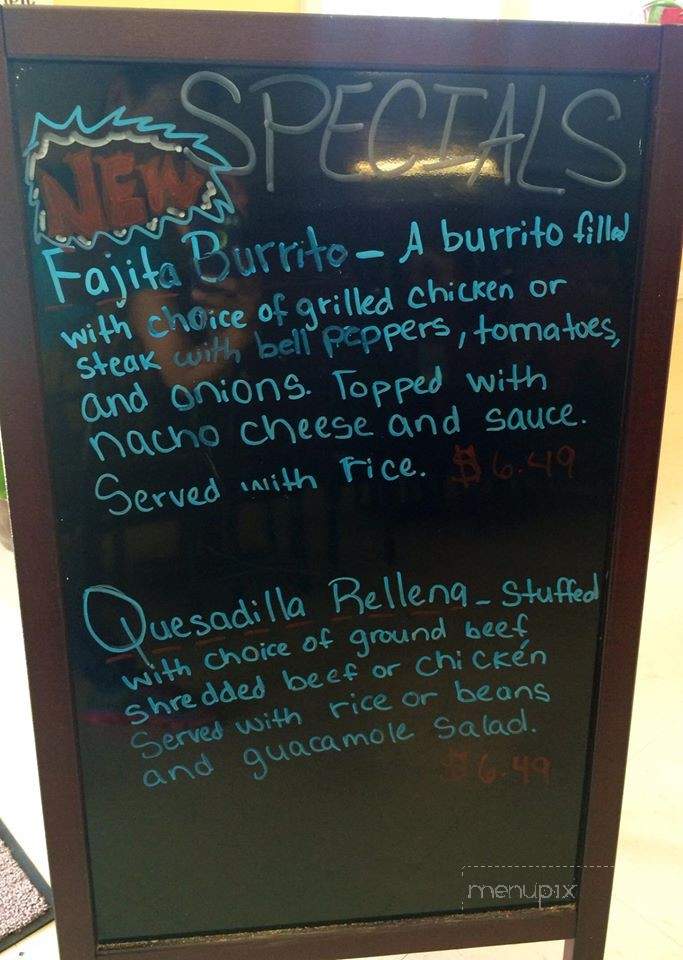 SPECIALS
NEW
Fajita Burrito - A burrito filled
with choice of grilled chicken or
steak with bell peppers, tomatoes,
and onions. Topped with
nacho cheese and sauce.
Served with rice. $6.49
Quesadilla Rellena - Stuffed
with choice of ground beef,
shredded beef or chicken
Served with rice or beans
and guacamole salad.
$6.49
menupix